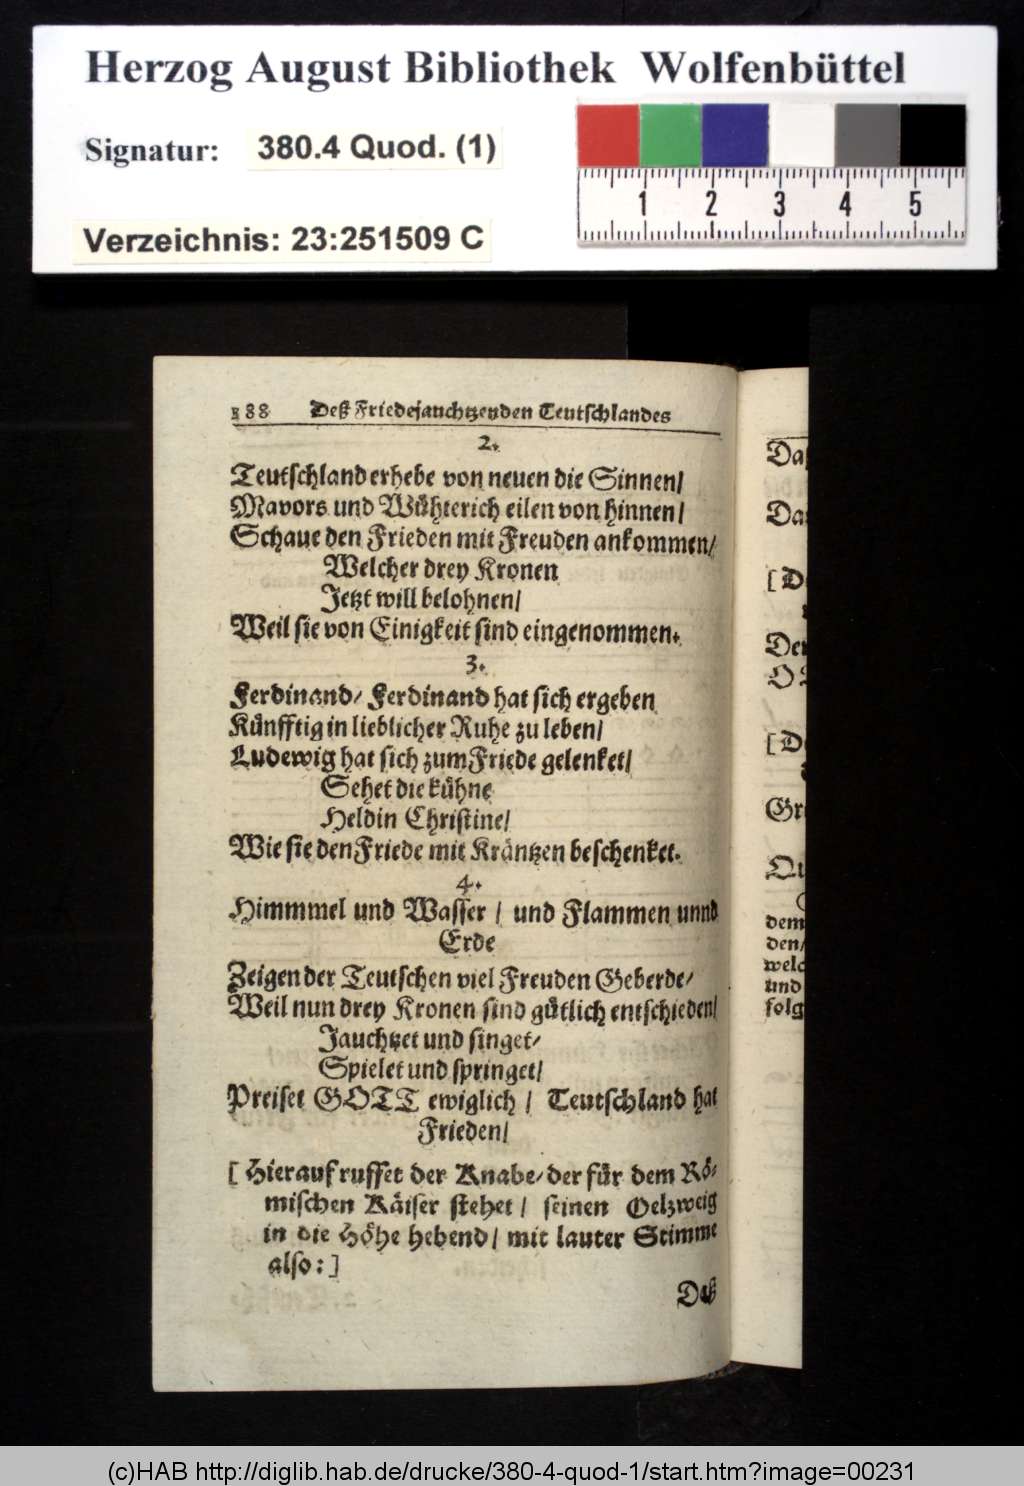 Herzog August Bibliothek Wolfenbüttel
Signatur: 380.4 Quod. (1)
Verzeichnis: 23:251509 C
1 2 3 4 5
188 Deß Friedejauchtzenden Teutschlandes
2.
Teutschland erhebe von neuen die Sinnen/
Mavors und Wühterich eilen von hinnen/
Schaue den Frieden mit Freuden ankommen/
Welcher drey Kronen
Jetzt will belohnen/
Weil sie von Einigkeit sind eingenommen.
3.
Ferdinand/ Ferdinand hat sich ergeben
Künfftig in lieblicher Ruhe zu leben/
Ludewig hat sich zum Friede gelenket/
Sehet die kühne
Heldin Christine/
Wie sie den Friede mit Kräntzen beschenket.
4.
Himmmel und Wasser / und Flammen unnd
Erde
Zeigen der Teutschen viel Freuden Geberde/
Weil nun drey Kronen sind gütlich entschieden/
Jauchtzet und singet/
Spielet und springet/
Preiset GOTT ewiglich / Teutschland hat
Frieden/
[Hierauf ruffet der Knabe/ der für dem Rö-
mischen Käiser stehet / seinen Oelzweig
in die Höhe hebend/ mit lauter Stimme
also:]
Daß
dem
den/
welc
und
folg
(c)HAB http://diglib.hab.de/drucke/380-4-quod-1/start.htm?image=00231